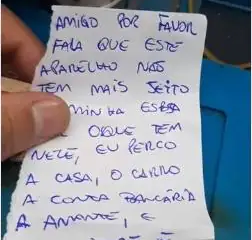 AMIGO POR FAVOR
FALA QUE ESTE
APARELHO NÃO
TEM MAIS JEITO
MINHA ESPOSA
OQUE TEM
NELE, EU PERCO
A CASA, O CARRO
A CONTA BANCÁRIA
A AMANTE, E